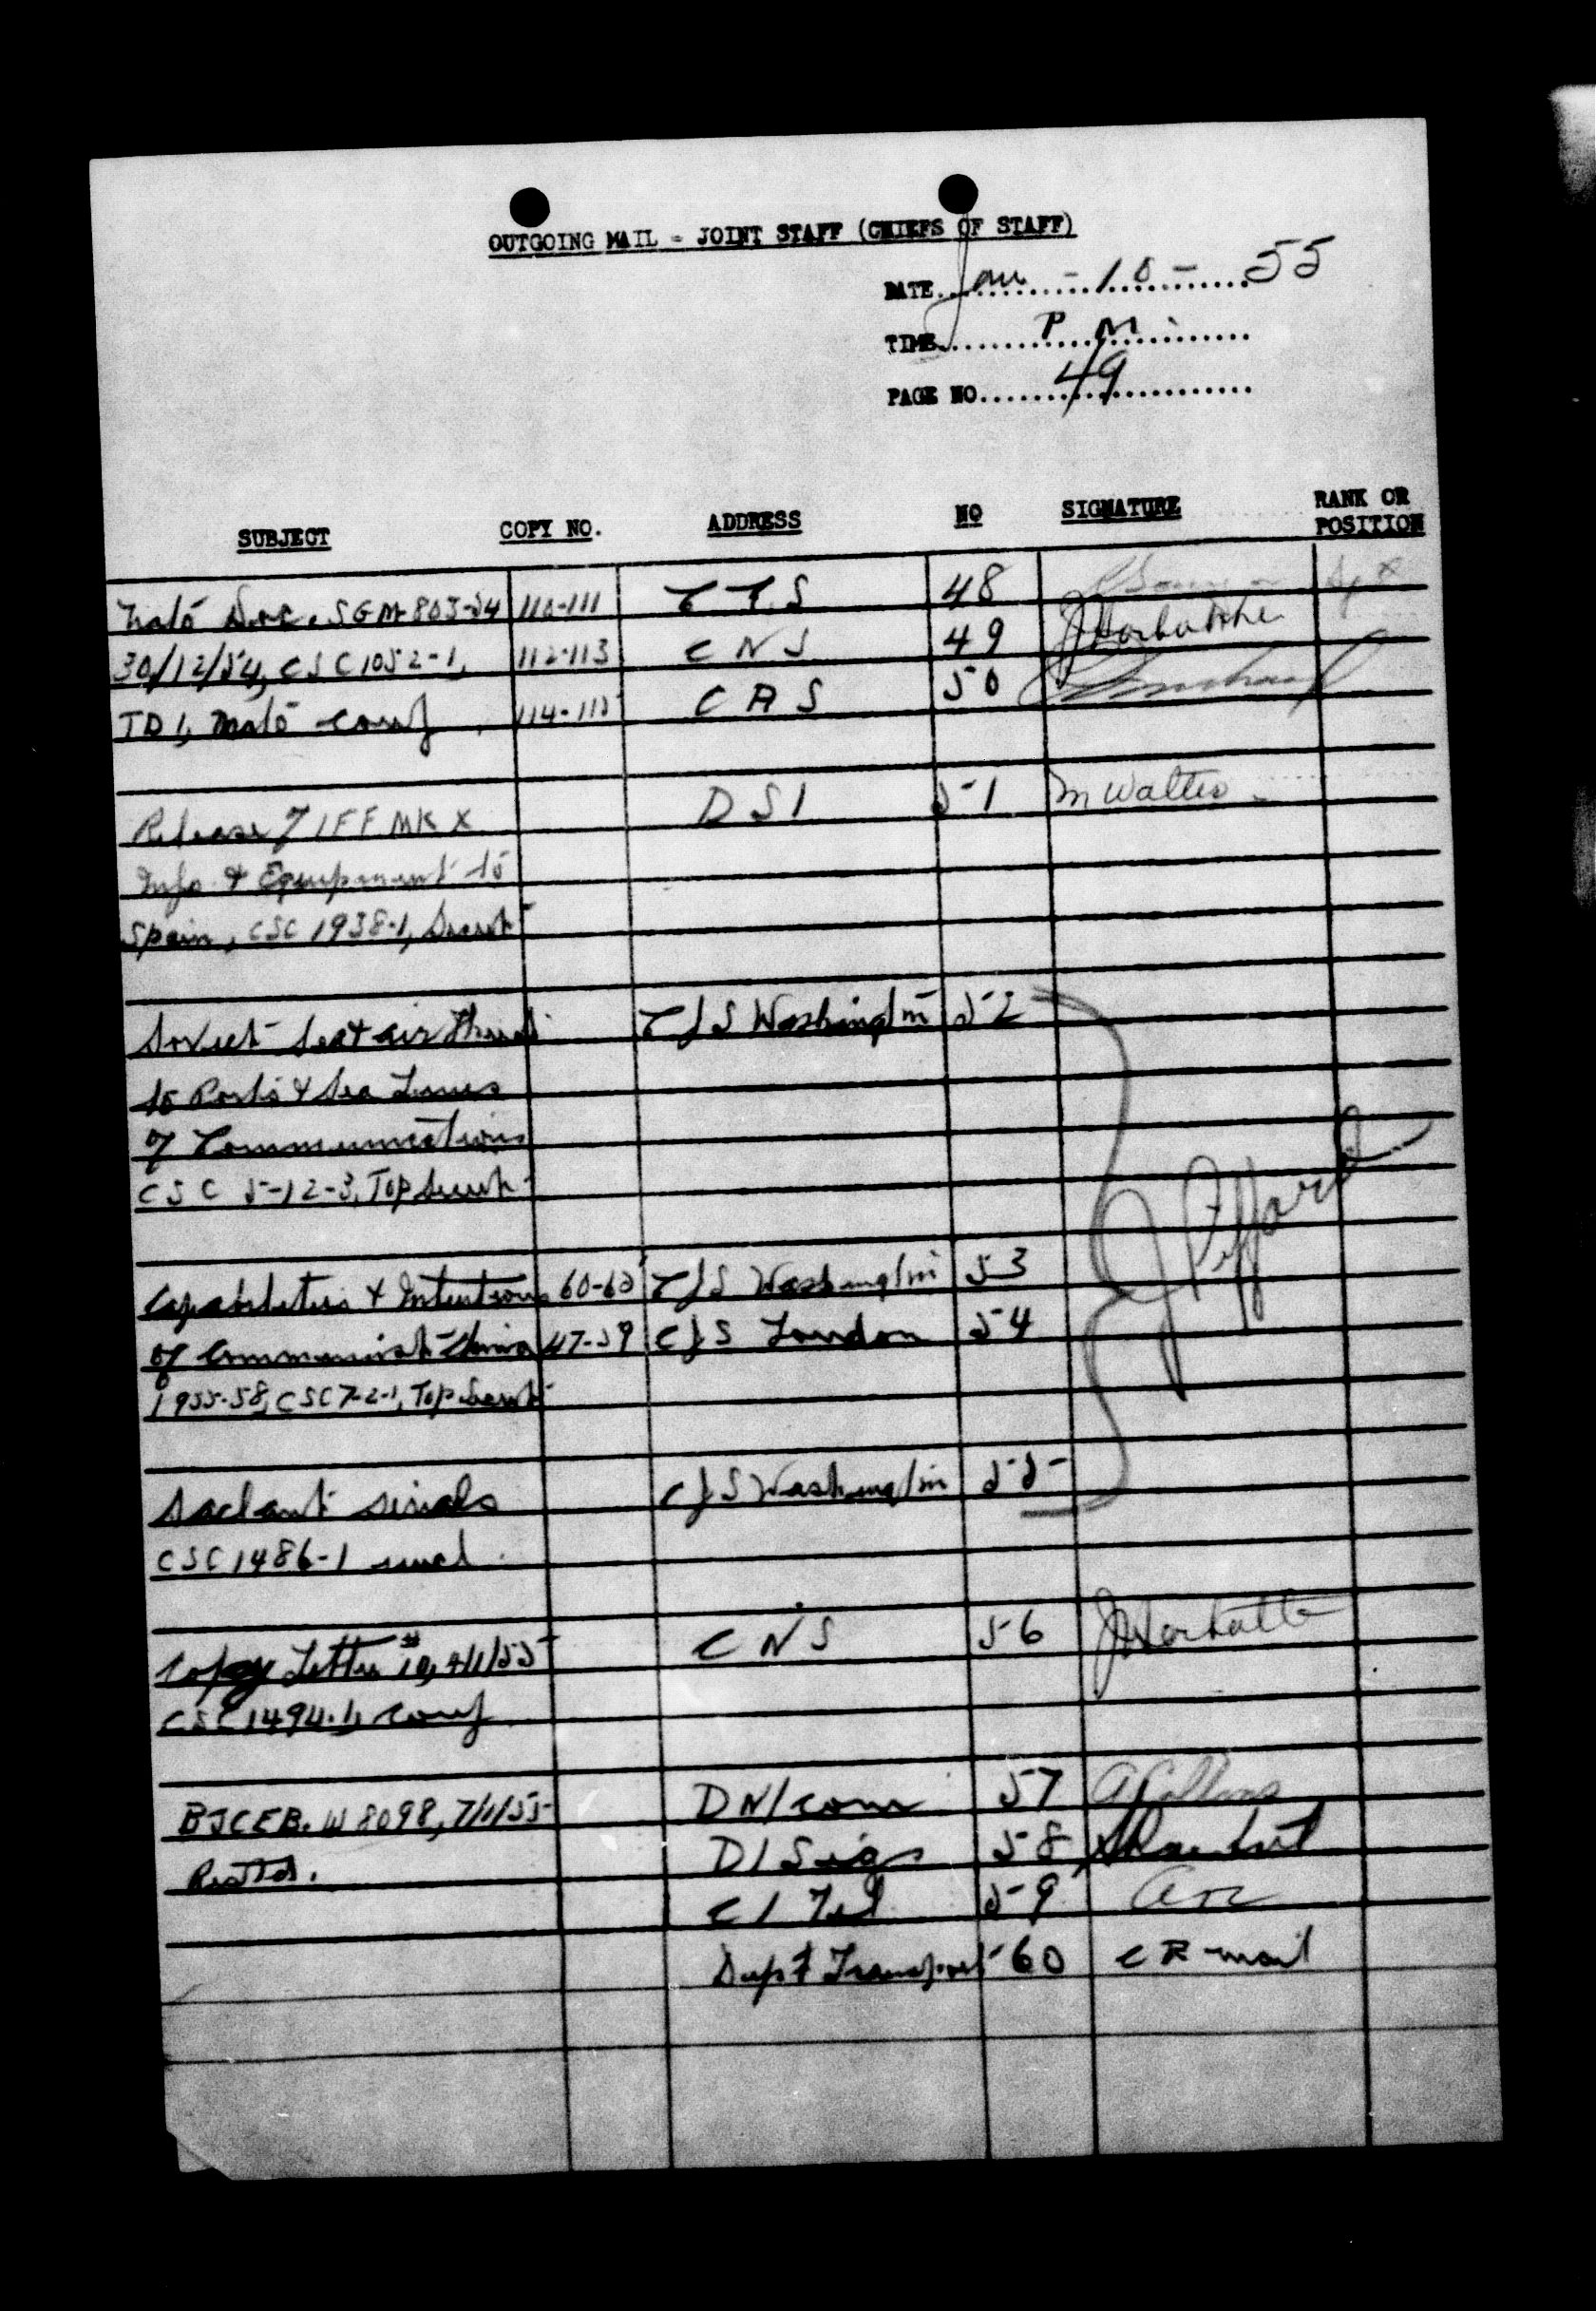 OUTGOING MAIL - JOINT STAFF (CHIEFS OF STAFF)
DATE Jan - 10 - 55
TIME P.M.
PAGE NO. 49
SUBJECT COPY NO. ADDRESS NO SIGNATURE RANK OR POSITION
Nato Doc. SGM-803-54 110-111 CGS 48
30/12/54, CSC 1052-1, 112-113 CNS 49
TD 1, Nato conf 114-115 CAS 50
Release of IFF MK X DSI 51 M Walter
Info & Equipment to
Spain, CSC 1938-1, Secret
Soviet Sea & air Threat CJS Washington 52
to Ports & Sea Lines
of Communications
CSC 5-12-3, Top Secret
Capabilities & Intentions 60-65 CJS Washington 53
of Communist China 47-59 CJS London 54
1955-58, CSC 7-2-1, Top Secret
J Piffard
Saclant serials CJS Washington 55
CSC 1486-1 uncl.
Copy Letter #10, 4/1/55 CNS 56
CSC 1494-1, conf
BJCEB. W 8098, 7/1/55 DN/Com 57 A Collins
Rest'd. D/Sigs 58
C/Tel 59
Dept Transport 60 CR mail